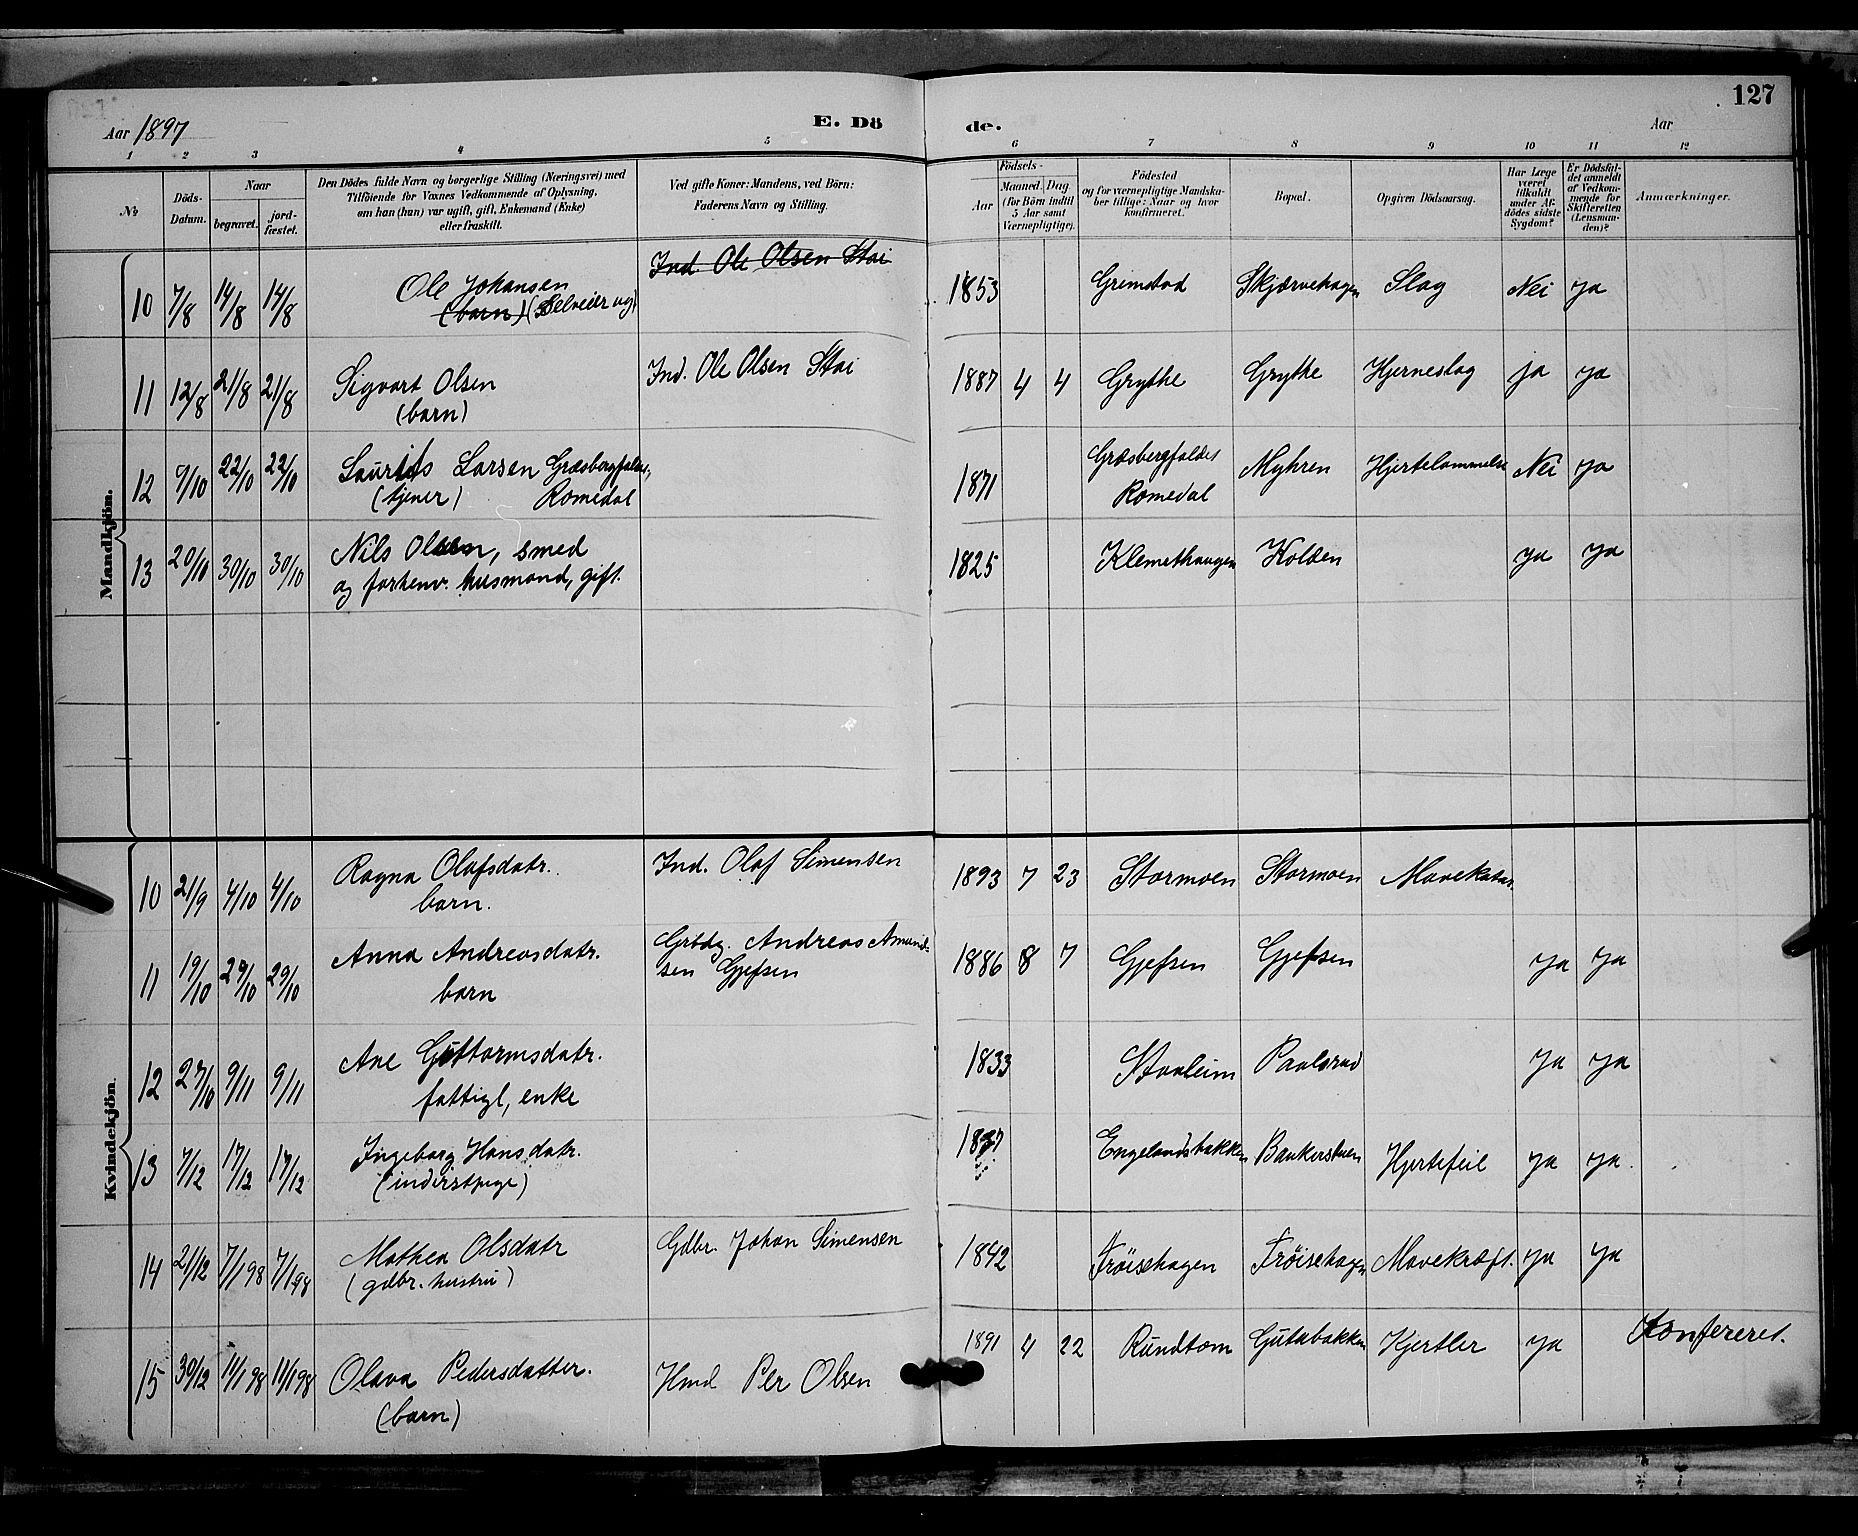 127
Aar 1897 E. Dö de. Aar
1 2 3 4 5 6 7 8 9 10 11 12
No
Döds-Datum.
Naar
begravet. jordfæstet.
Den Dödes fulde Navn og borgerlige Stilling (Næringsvei) med
Tilföiende for Voxnes Vedkommende af Oplysning,
om han (hun) var ugift, gift, Enkemand (Enke)
eller fraskilt.
Ved gifte Koner: Mandens, ved Börn:
Faderens Navn og Stilling.
Födsels-
Aar Maaned. Dag
(for Börn indtil
5 Aar samt
Værnepligtige).
Födested
og for værnepligtige Mandska-
ber tillige: Naar og hvor
konfirmeret.
Bopæl.
Opgiven Dödsaarsag.
Har Læge
været
tilkaldt
under Af-
dödes sidste
Sygdom?
Er Dödsfal-
det anmeldt
af Vedkom-
mende for
Skifteretten
(Lensman-
den)?
Anmærkninger.
Mandkjön.
Ind. Ole Olsen Stai
10 7/8 14/8 14/8 Ole Johansen 1853 Grimstad Skjærvehagen Slag Nei ja
(barn) (Selveier ug)
11 12/8 21/8 21/8 Sigvart Olsen Ind. Ole Olsen Stai 1887 4 4 Grythe Grythe Hjerneslag ja ja
(barn)
12 9/10 22/10 22/10 Laurits Larsen Græsbergfaldet, 1871 Græsbergfaldet Myhren Hjertelammelse Nei ja
(tjener) Romedal Romedal
13 20/10 30/10 30/10 Nils Olsen, smed 1825 Klemethaugen Kolben ja ja
og forhenv. husmand, gift.
Kvindekjön.
10 21/9 4/10 4/10 Ragna Olafsdatr. Ind. Olaf Simensen 1893 7 23 Stormoen Stormoen Mavekatar.
barn.
11 19/10 29/10 29/10 Anna Andreasdatr. Grbdg. Andreas Amund- 1886 8 7 Gjefsen Gjefsen ja ja
barn sen Gjefsen
12 27/10 9/11 9/11 Ane Guttormsdatr. 1833 Staaleim Paalsrud ja ja
fattigl, enke
13 7/12 17/12 17/12 Ingeborg Hansdatr. 1837 Engelandsbakken Bankerstuen Hjertefeil ja ja.
(inderstpige)
14 21/12 7/1 98 7/1 98 Mathea Olsdatr Gdbr. Johan Simensen 1842 Fröisehagen Fröisehagen Mavekræft. ja ja
(gdbr. hustru)
15 30/12 11/1 98 11/1 98 Olava Pedersdatter. Hmd Per Olsen 1891 4 22 Rundtom Gutubakken Kjertler ja Konfereret.
(barn)